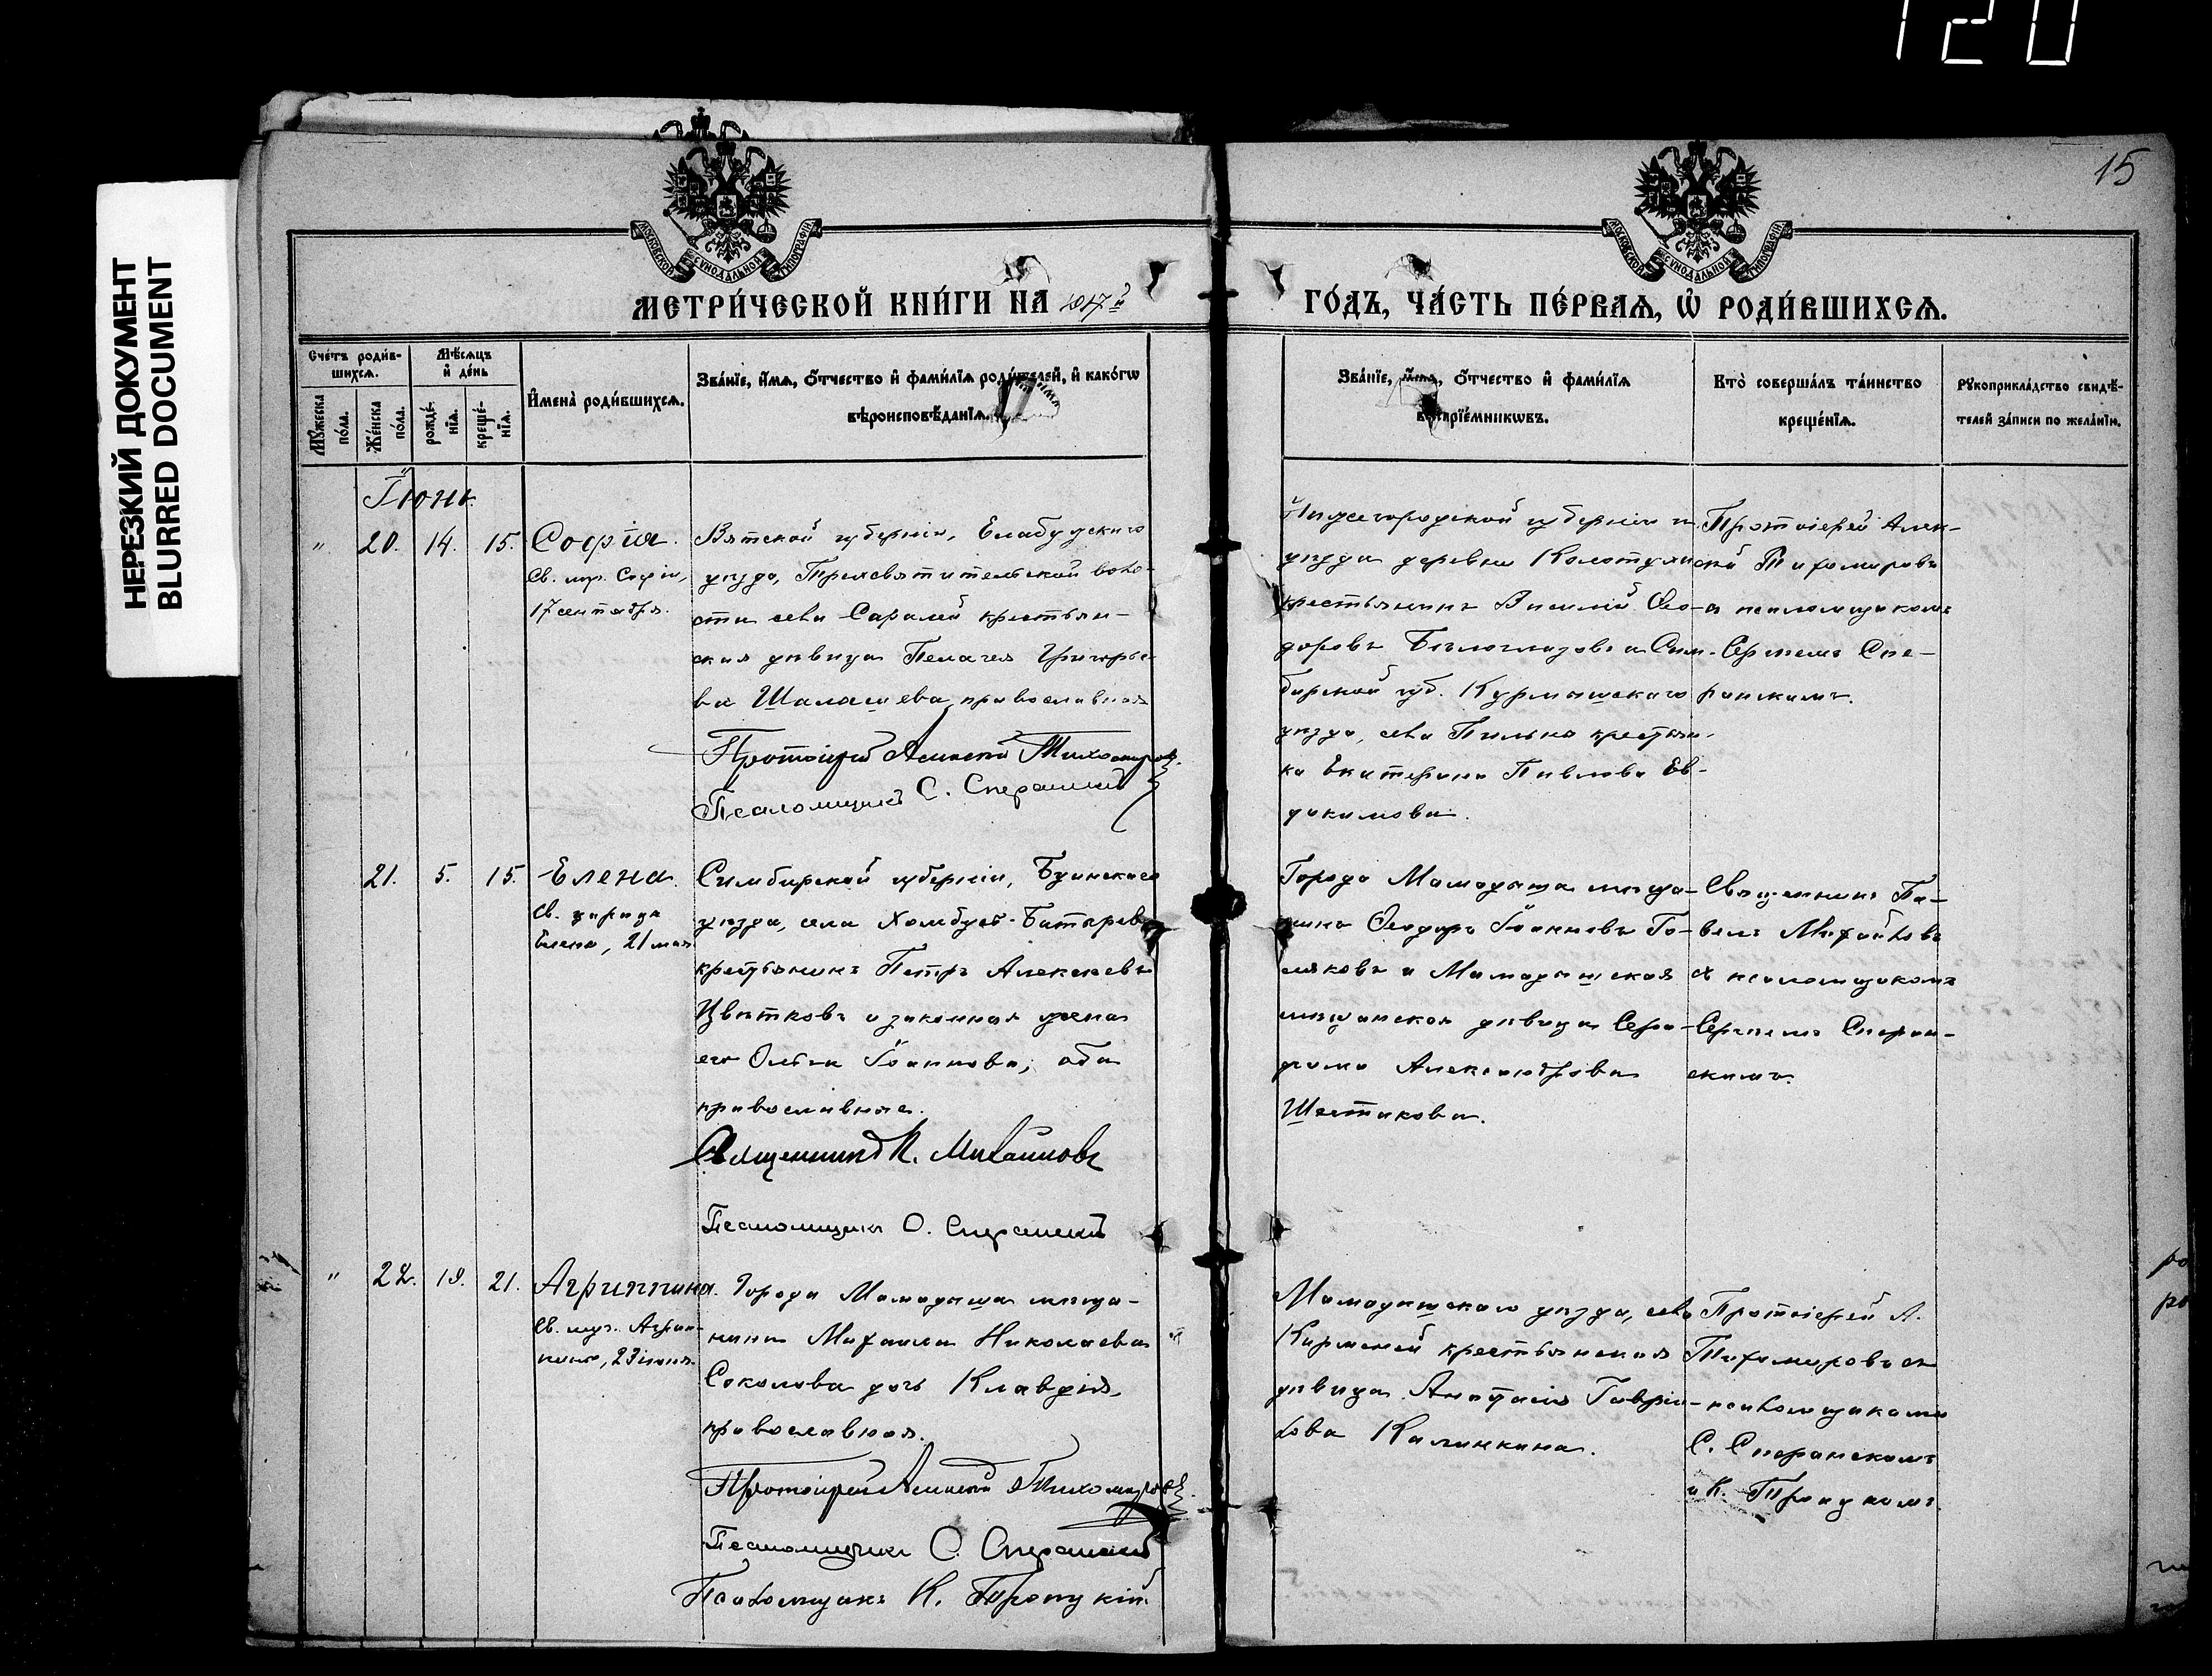 120
15
НЕРЕЗКИЙ ДОКУМЕНТ
BLURRED DOCUMENT
МОСКОВСКОЙ СѴНОДАЛЬНОЙ ТИПОГРАФІИ
МОСКОВСКОЙ СѴНОДАЛЬНОЙ ТИПОГРАФІИ
МЕТРИ́ЧЕСКОЙ КНИ́ГИ НА 1917й
ГО́ДЪ, ЧА́СТЬ ПЕ́РВАѦ, Ѡ҆ РОДИ́ВШИХСѦ.
Сче́тъ роди́в-
шихсѧ.
Мꙋ́жеска
по́ла.
Же́нска
по́ла.
Мѣ́сѧцъ
и҆ де́нь
рожде́-
нїѧ.
креще́-
нїѧ.
И҆мена̀ роди́вшихсѧ.
Зва́нїе, и҆́мѧ, о҆́тчество и҆ фами́лїѧ роди́телей, и҆ како́гѡ
вѣроисповѣ́данїѧ.
Зва́нїе, и҆́мѧ, о҆́тчество и҆ фами́лїѧ
воспрїе́мникѡвъ.
Кто̀ соверша́лъ та́инство
креще́нїѧ.
Рꙋкоприкла́дство свидѣ́-
телей за́писи по жела́нїю.
Іюнь.
" 20. 14. 15. Софія.
Св. муч. Софіи,
17 сентября.
Вятской губерніи, Елабужскаго
уѣзда, Трехсвятительской воло-
сти села Саралей крестьян-
ская дѣвица Пелагея Григорье-
ва Шалашева, православная
Протоіерей Алексій Тихомировъ.
Псаломщикъ С. Сперанскій
Нижегородской губерніи и
уѣзда деревни Колотухи
крестьянинъ Василій Ѳео-
доровъ Бѣлоглазовъ и Сим-
бирской губ. Курмышскаго
уѣзда, села Пильна крестьян-
ка Екатерина Павлова Ев-
докимова.
Протоіерей Алек-
сій Тихомировъ
съ псаломщикомъ
Сергѣемъ Спе-
ранскимъ.
21. 5. 15. Елена.
Св. царица
Елена, 21 мая
Симбирской губерніи, Буинскаго
уѣзда, села Хомбусь-Батырево
крестьянинъ Петръ Алексѣевъ
Цвѣтковъ и законная жена
его Ольга Іоаннова; оба
православные.
Священникъ П. Михайловъ
Псаломщикъ С. Сперанскій
Города Мамадыша мѣща-
нинъ Ѳеодоръ Іоанновъ По-
ляковъ и Мамадышская
мѣщанская дѣвица Сера-
фима Александрова
Шестакова.
Священникъ Па-
велъ Михайловъ
съ псаломщикомъ
Сергѣемъ Сперан-
скимъ.
" 22. 18. 21. Агриппина.
Св. муч. Агрип-
пины, 23 іюня.
Города Мамадыша мѣща-
нина Михаила Николаева
Соколова дочь Клавдія,
православная.
Протоіерей Алексій Тихомировъ.
Псаломщикъ С. Сперанскій
Псаломщикъ К. Троицкій.
Мамадышскаго уѣзда, села
Кирменей крестьянская
дѣвица Анастасія Гаври-
лова Калинкина.
Протоіерей А.
Тихомировъ съ
псаломщиками
С. Сперанскимъ
и К. Троицкимъ.